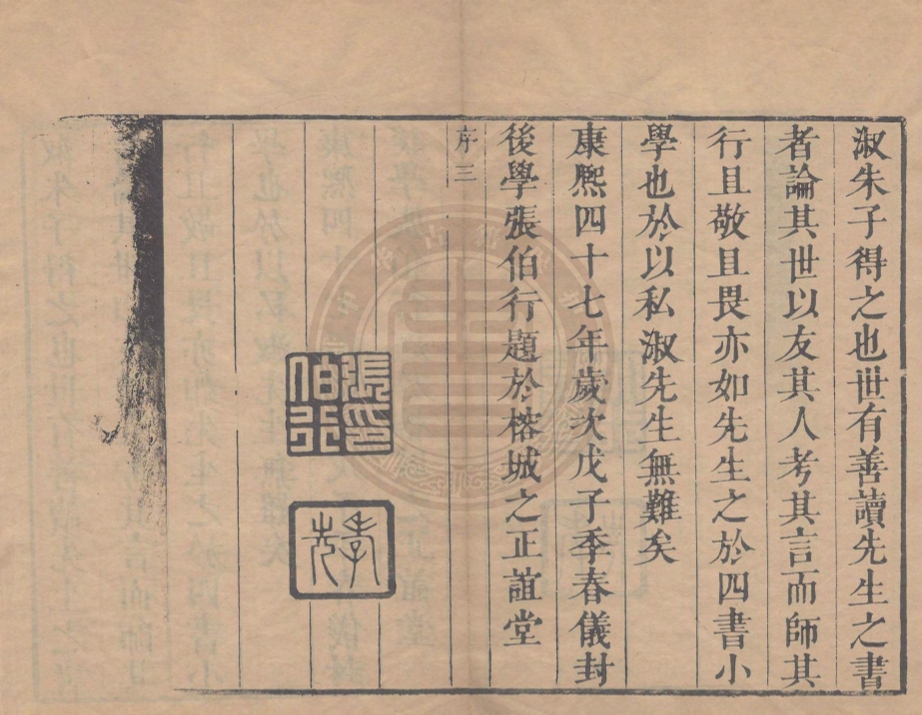 淑朱子得之也世有善讀先生之書
者論其世以友其人考其言而師其
行且敬且畏亦如先生之於四書小
學也於以私淑先生無難矣
康熙四十七年歲次戊子季春儀封
後學張伯行題於榕城之正誼堂
序 三
張印伯行
孝先